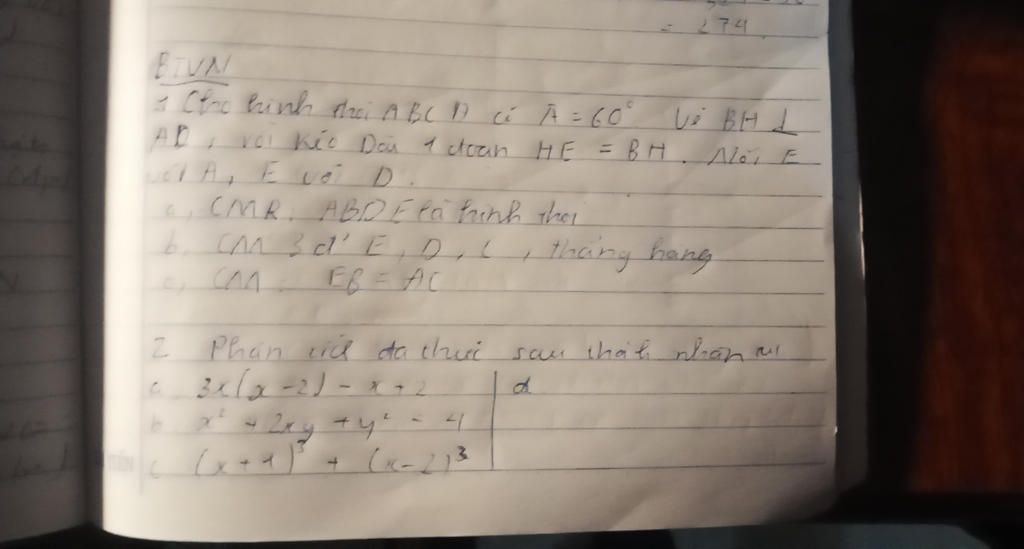 = 274
BTVN
1 Cho hình thoi ABCD có Â = 60° Vẽ BH ⊥
AD, rồi kéo Dài 1 đoạn HE = BH. Nối E
với A, E với D.
a, CMR: ABDE là hình thoi
b, CM 3 đ' E, D, C, thẳng hàng
c, CM: EB = AC
2 Phân tích đa thức sau thành nhân tử
a 3x(x-2) - x + 2
d
b x² + 2xy + y² - 4
c (x+1)³ + (x-2)³